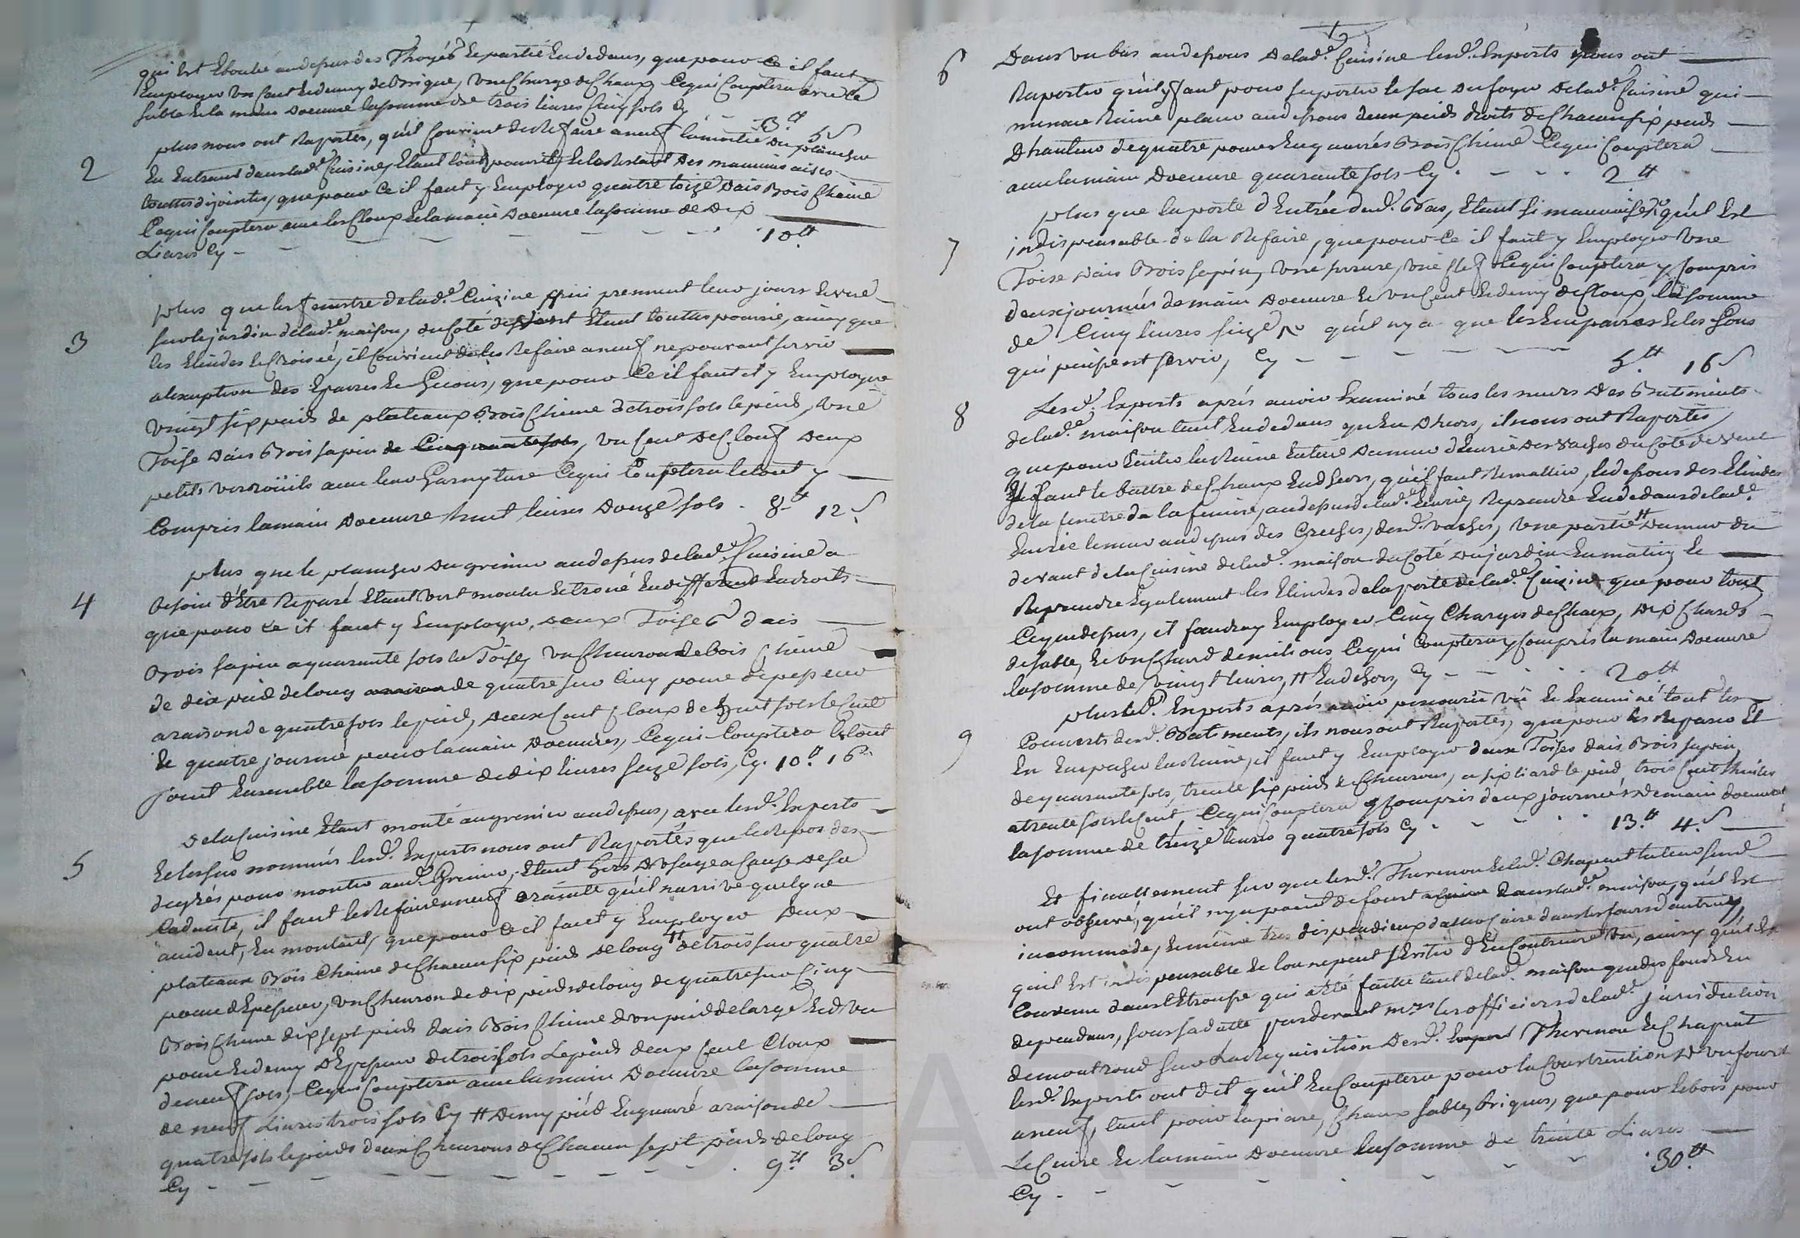 qui Est Eboulé audessus des Thoyés Separtié Endedans, que pour ce il faut
Employer un cent Et demy de Brique, une Charge de Chaux Cequi Couptera avec le
sable Et la main Doeuvre lasomme de trois livres cinq sols Cy
3.# 5 s
2
plus nous ont Raportés, qu'il Convient de Refaire a neuf la moitié Du plancher
En Entrant dans lad.e Cuisine, Etant tout pourrit, Et les restant Des mauvais aises
toutes dijointes, que pour Ce il faut y Employer quatre toize Dais Bois Chaine
Cequi Couptera avec les Cloux Et la main Doeuvre la somme de Dix
Livres Cy - 10.#
3
plus que les fenestre de lad.e Cuizine qui prennent leur jours Et vue
sur le jardin de lad.e maison, du Coté de Etant toutes pourrie, aincy que
les Elindes Et Croisée, il Convient de les Refaire a neuf ne pouvant servir
alexeption des Eparres Et Goions, que pour Ce il faut y Employer
veingt six pieds de plateaux Bois Chaine de trois sols le pied, une
Toise Dais Bois sapin de Cinquante sols, un Cent De Clouf deux
petits verroüils avec leur Garnyture Cequi Couptera le tout y
Compris lamain Doeuvre huit livres Douze sols - 8.# 12 s
4
plus que le plancher Du grenier au dessus de lad.e Cuisine a
besoin d'Etre Reparé Etant vermoulu Et troué En different Endroits
que pour Ce il faut y Employer, deux Toises dais
Bois sapin a quarante sols la Toise, un Chevron de bois Chaine
de dix pied de long de quatre sur Cinq pouce depesseur
a raison de quatre sols le pied, deux Cent Cloux de huit sols le Cent
Et quatre journé pour la main Doeuvres, Cequi Couptera le tout
joint Ensemble la somme de dix livres seize sols, Cy. 10.# 16
5
De la Cuisine Etant monté au grenier au dessus, avec lesd. Experts
Et les sus nommés lesd. Experts nous ont Raportés que le Repos des
degrés pour monter aud. Grenier, Etant hors D'Usage a Cause de sa
Caducité, il faut le Refaire neuf crainte qu'il n'arrive quelque
accident, En montant, que pour Ce il faut y Employer deux
plateaux Bois Chaine de Chacun six pieds de long # de trois sur quatre
pouce d'Epesseur, un Chevron de dix pieds de long de quatre sur Cinq
Bois Chaine dix sept pieds dais Bois Chaine d'un pied de large Et d'un
pouce Et demy D'Epesseur de trois sols Le pied deux Cent Cloux
de neuf sols, Cequi Couptera avec la main Doeuvre la somme
de neuf Livres trois sols Cy # Demy pied En quarré a raison de
quatre sols le pieds deux Chevrons de Chacun sept pieds de long
Cy - 9.# 3 s
6
Dans un bas au dessous De lad.e Cuisine lesd. Experts nous ont
Raporter qu'il y faut pour suporter le sac du foyer De lad.e Cuisine qui
menace Ruine placer au dessous deux pieds droits de Chacun six pieds
D'hauteur de quatre pouces En quarrés Bois Chaine Cequi Couptera
avec la main Doeuvre quarante sols Cy - 2.#
7
plus que la porte d'Entrée dud. Bas, Etant si mauvaise qu'il Est
indispensable de la Refaire, que pour Ce il faut y Employer une
Toise Dais Bois sapin, une serrure, une Clef Cequi Couptera y Compris
deux journés de main Doeuvre Et un Cent Et demy de Cloux, la somme
de Cinq livres seize s qu'il n'y a que les Emparres Et les Gons
qui puissent servir, Cy - 5.# 16 s
8
Lesd. Experts aprés avoir Examiné tous les murs Des Batiments
de lad.e maison tant En dedans qu'En Dhors, il nous ont Raportés
que pour Eviter la Ruine Entiere Du mur d'Eurie Des vaches Du Coté de vent
Il faut le battre de Chaux En dhors, qu'il faut Remettre, le dessous des Elindes
de la fenetre de la feniere, au dessus de lad.e Eurie, Reprendre En dedans de lad.e
Eurie le mur au dessus des Creches, desd. vaches, une partie # Du mur du
devant de la Cuisine de lad.e maison du Coté du jardin Au matin Et
Reprendre Egalement les Elindes de la porte de lad.e Cuizine que pour tout
Cequ'edessus, il faudray Employer Cinq Charges de Chaux, Dix Chards
de sable, Et un Chard de mellions Cequi Couptera y Compris la main Doeuvre
la somme de vingt livres, # En dehors Cy - 20.#
9
plus led. Experts aprés avoir parcourus vüe Et Examiné tout les
Couverts desd. Batiments, ils nous ont Raportés, que pour les Reparer Et
En Empecher la Ruine, il faut y Employer deux Toises Dais Bois sapin,
de quarante sols, trente six pieds de Chevrons, a six liard le pied, trois Cent thuiles
a trente sols le Cent, Cequi Couptera y Compris deux journées De main Doeuvre
la somme de treize livres quatre sols Cy - 13.# 4. s
Et finallement sur que lesd. Thurmon Et lad. Chaperut tuteur seud
ont observé, qu'il n'y a point de four a Cuire dans lad.e maison, qu'il Est
incommode, Et même tres dispendieux d'aller Cuire dans les fours d'autruy
qu'il Est indispensable Et lon ne peut s'Eviter d'En Construire un, aincy qu'il Est
Convenu dans l'Etrousse qui a été faitte tant de lad.e maison que des fonds En
dependans, sous sa datte pardevant mrs les officiers de lad.e jurisdiction
de montrond sur La Requisition desd. Thurmon Et Chaprut
lesd. Experts ont dit qu'il En Couptera pour la Construction D'un four
a neuf, tant pour la piere, Chaux sable, briques, que pour le bois pour
Le Cuire Et la main Doeuvre la somme de trente Livres
Cy - 30.#